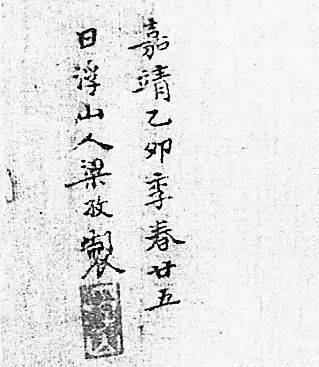 嘉靖乙卯季春廿五
日浮山人梁孜製